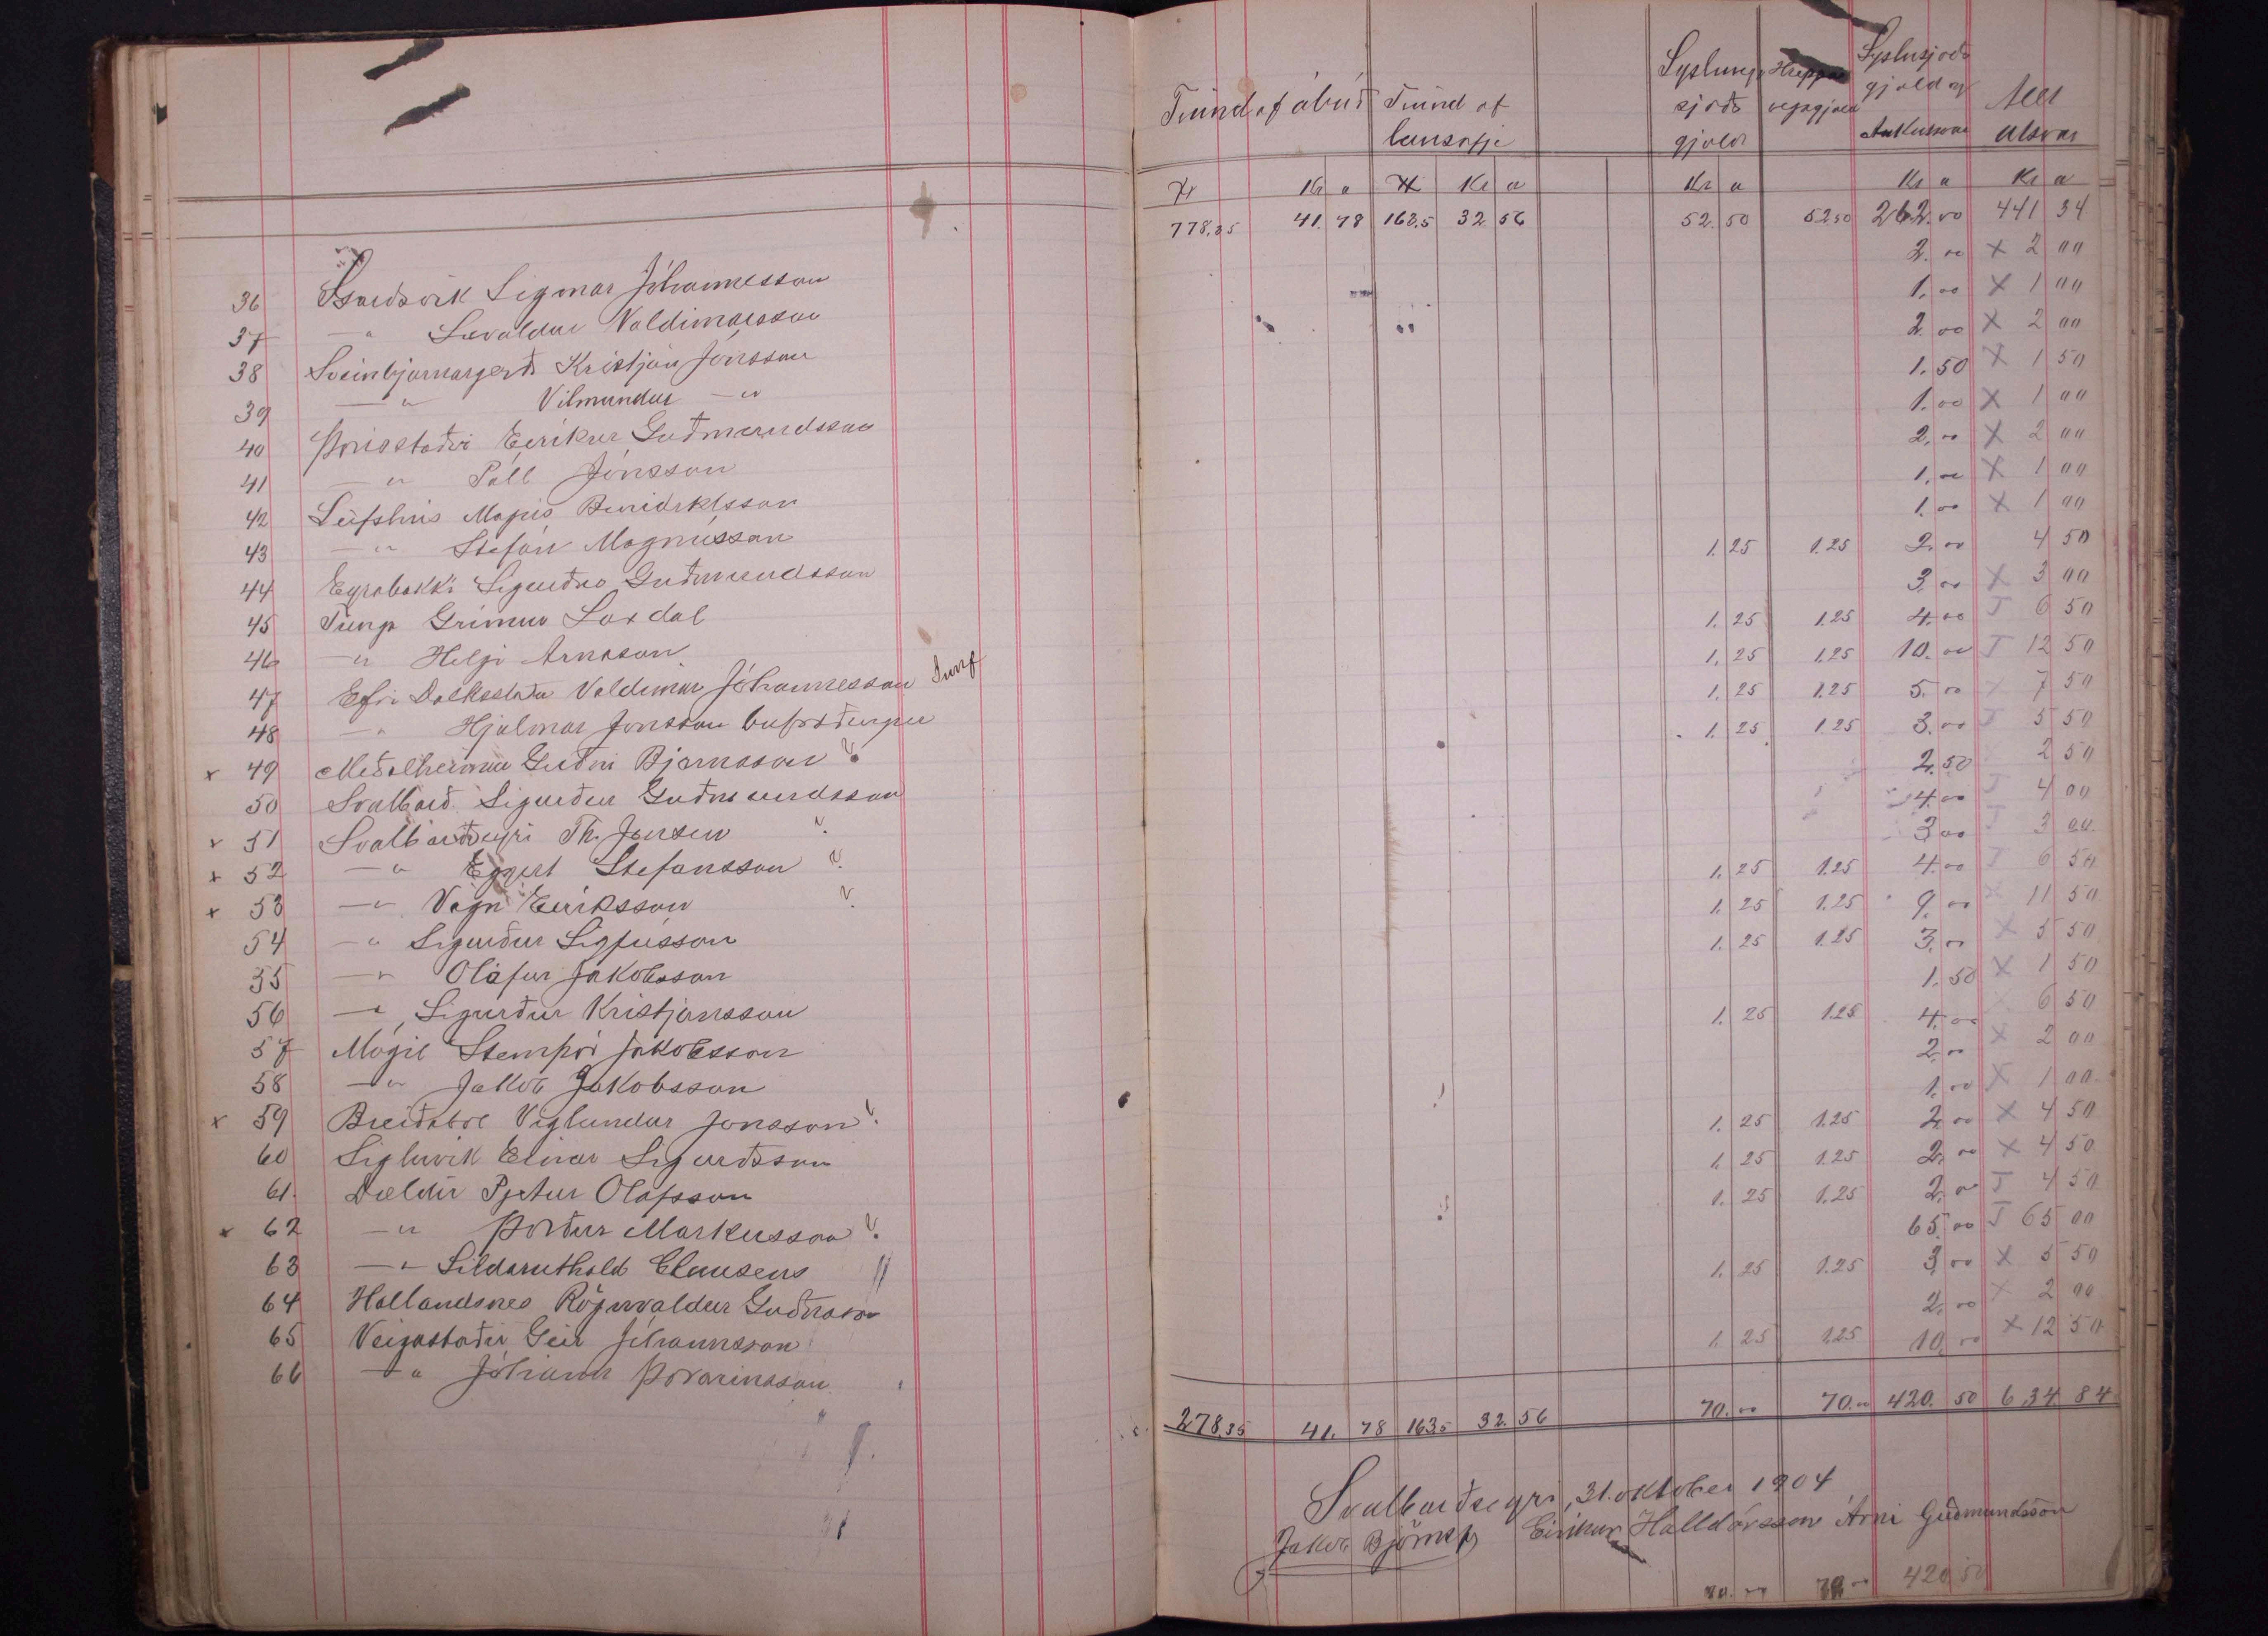 Tiund af ábúð
Tiund af lausafje
Syslunga sjóðs gjald
Hreppa vegagjald
Syslusjoðs gjald og Aukautsvar
Allt utsvar
Kr a Kr a Kr a Kr a Kr a
778,35 41. 78 163.5 32 56 52. 50 52 50 262. 00 441 34
36 Sigmar Jóhannesson 2. 00 x 2 00
37 — " Sævaldur Valdimarsson 1. 00 x 1 00
38 Sveinbjarnargerð Kristján Jónsson 2. 00 x 2 00
39 — " Vilmundur — " 1. 50 x 1 50
40 Þórisstaðir Eiríkur Guðmundsson 1. 00 x 1 00
41 — " Páll Jónsson 2. 00 x 2 00
42 Leifshús Magús Benidiktsson 1. 00 x 1 00
43 — " Stefán Magnússon 1. 00 x 1 00
44 Eyrabakki Sigurður Guðmundsson 1. 25 1.25 2. 00 4 50
45 Tunga Grímur Laxdal 3. 00 x 3 00
46 — " Helgi Arnason 1. 25 1.25 4. 00 J 6 50
47 Efri Dálksstaðir Valdimar Jóhannesson 1. 25 1.25 10. 00 J 12 50
48 — " Hjálmar Jónsson 1. 25 1.25 5. 00 x 7 50
x 49 Meðalheimur Guðni Bjarnason v. 1. 25 1.25 3. 00 J 5 50
50 Svalbarð Sigurður Guðmundsson 2. 50 2 50
x 51 Svalbarðseyri Th. Jensen v. 4. 00 J 4 00
x 52 — " Eggert Stefansson v. 3 00 J 3 00
x 53 — " Vagn Eiríksson v. 1. 25 1.25 4. 00 J 6 50
54 — " Sigurður Sigfússon 1. 25 1.25 9. 00 x 11 50
55 — " Ólafur Jakobsson 1. 25 1.25 3. 00 x 5 50
56 — " Sigurður Kristjánsson 1. 50 x 1 50
57 Mógil Steinþór Jakobsson 1. 25 1.25 4. 00 6 50
58 — " Jakob Jakobsson 2. 00 x 2 00
x 59 Breiðaból Víglundur Jónsson v. 1. 00 x 1 00
60 Sigluvík Einar Sigurðsson 1. 25 1.25 2. 00 x 4 50
61. Dældir Pjetur Olafsson 1. 25 1.25 2. 00 x 4 50
x 62 — " Þórður Markusson v. 1. 25 1.25 2. 00 J 4 50
63 — " Síldaruthald Clausens 65. 00 J 65 00
64 Hallandsnes Rögnvaldur Guðnason 1. 25 1.25 3. 00 x 5 50
65 Veigastaðir Geir Jóhannsson 2. 00 x 2 00
66 — " Jóhann Þorarinsson 1. 25 1.25 10. 00 x 12 50
278,35 41. 78 163.5 32. 56 70. 00 70. 00 420. 50 634 84
Svalbarðseyri, 31. oktober 1904
Jakob Björns Eiríkur Halldórsson Árni Guðmundsson
70. 00 70 00 420 50